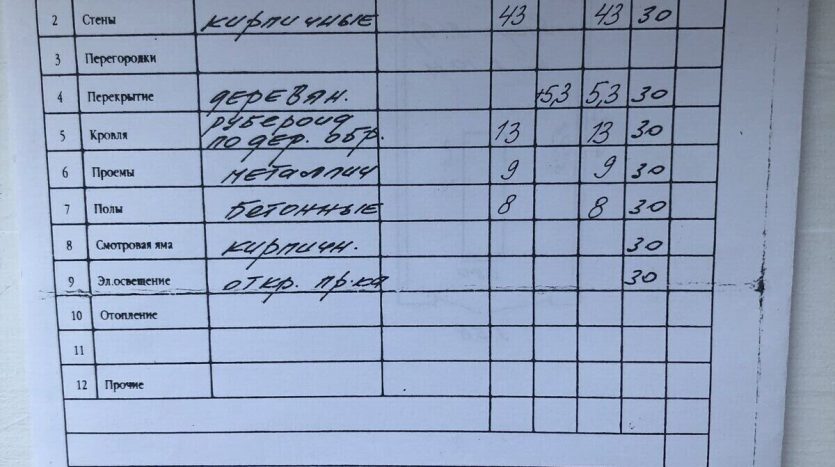 2 Стены кирпичные 43 43 30
3 Перегородки
4 Перекрытие деревян. +5,3 5,3 30
5 Кровля рубероид
по дер. обр. 13 13 30
6 Проемы металлич 9 9 30
7 Полы бетонные 8 8 30
8 Смотровая яма кирпичн. 30
9 Эл.освещение откр. пр-ка 30
10 Отопление
11
12 Прочие